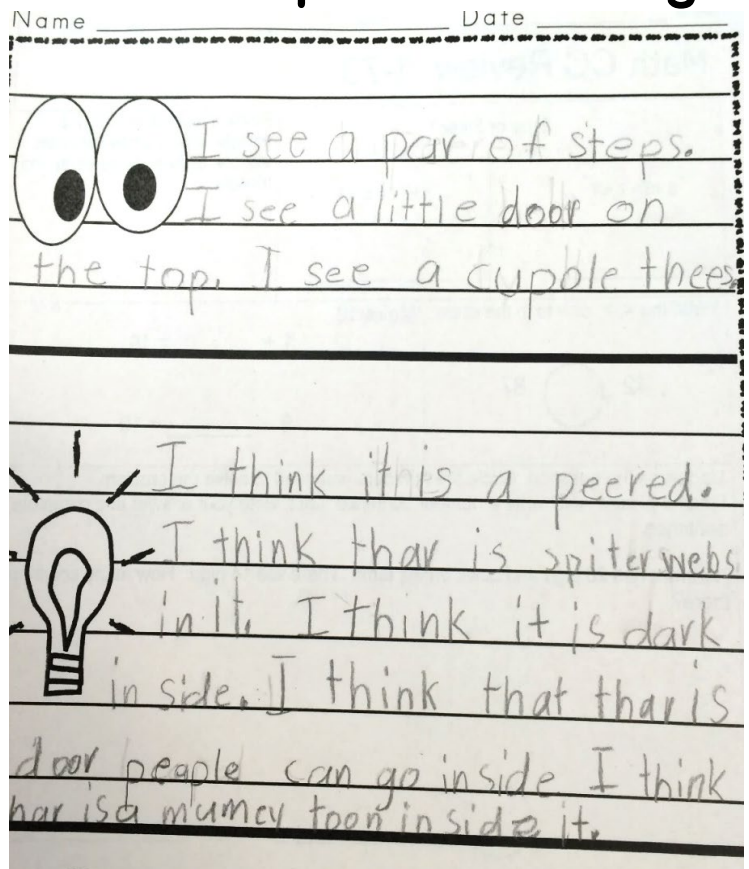 Name Date
I see a par of steps.
I see a little door on
the top. I see a cupple thees
I think this a peered.
I think thar is spiter webs
in It. I think it is dark
in side. I think that thar is
door peaple can go inside I think
har is a mumey toon in side it.